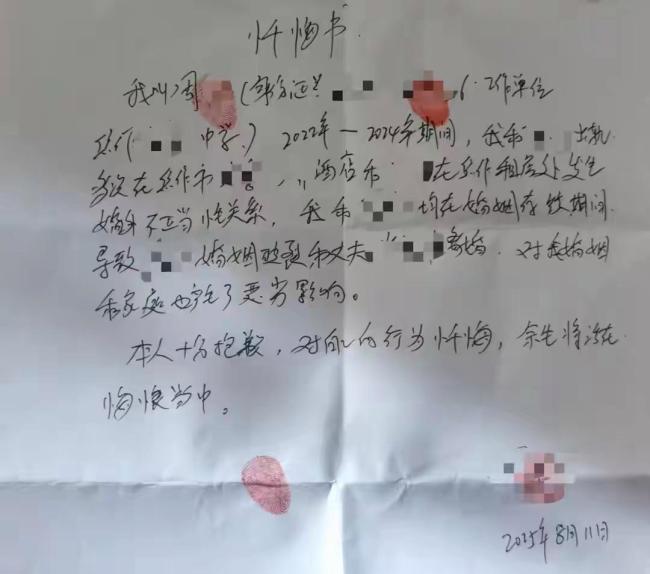 忏悔书
我叫周 (身份证 工作单位
焦作 中学) 2022年—2024年期间, 我和 出轨
多次在焦作市 酒店和 在焦作租房处发生
婚外不正当性关系, 我和 均在婚姻存续期间
导致 婚姻破裂和丈夫 离婚. 对我婚姻
和家庭也产生了恶劣影响。
本人十分抱歉, 对自己的行为忏悔, 余生将活在
悔恨当中。
2025年8月11日